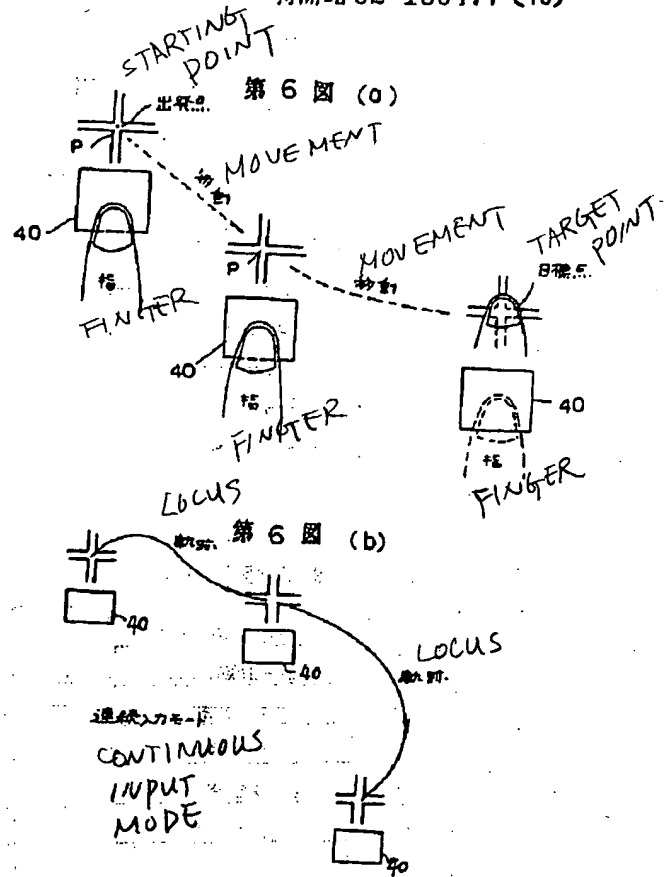 STARTING
POINT
出発点
第6図 (a)
P
移動
MOVEMENT
40
指
FINGER
P
MOVEMENT
移動
TARGET
POINT
目標点
40
指
FINGER
40
指
FINGER
LOCUS
軌跡
第6図 (b)
40
40
LOCUS
軌跡
連続入力モード
CONTINUOUS
INPUT
MODE
40